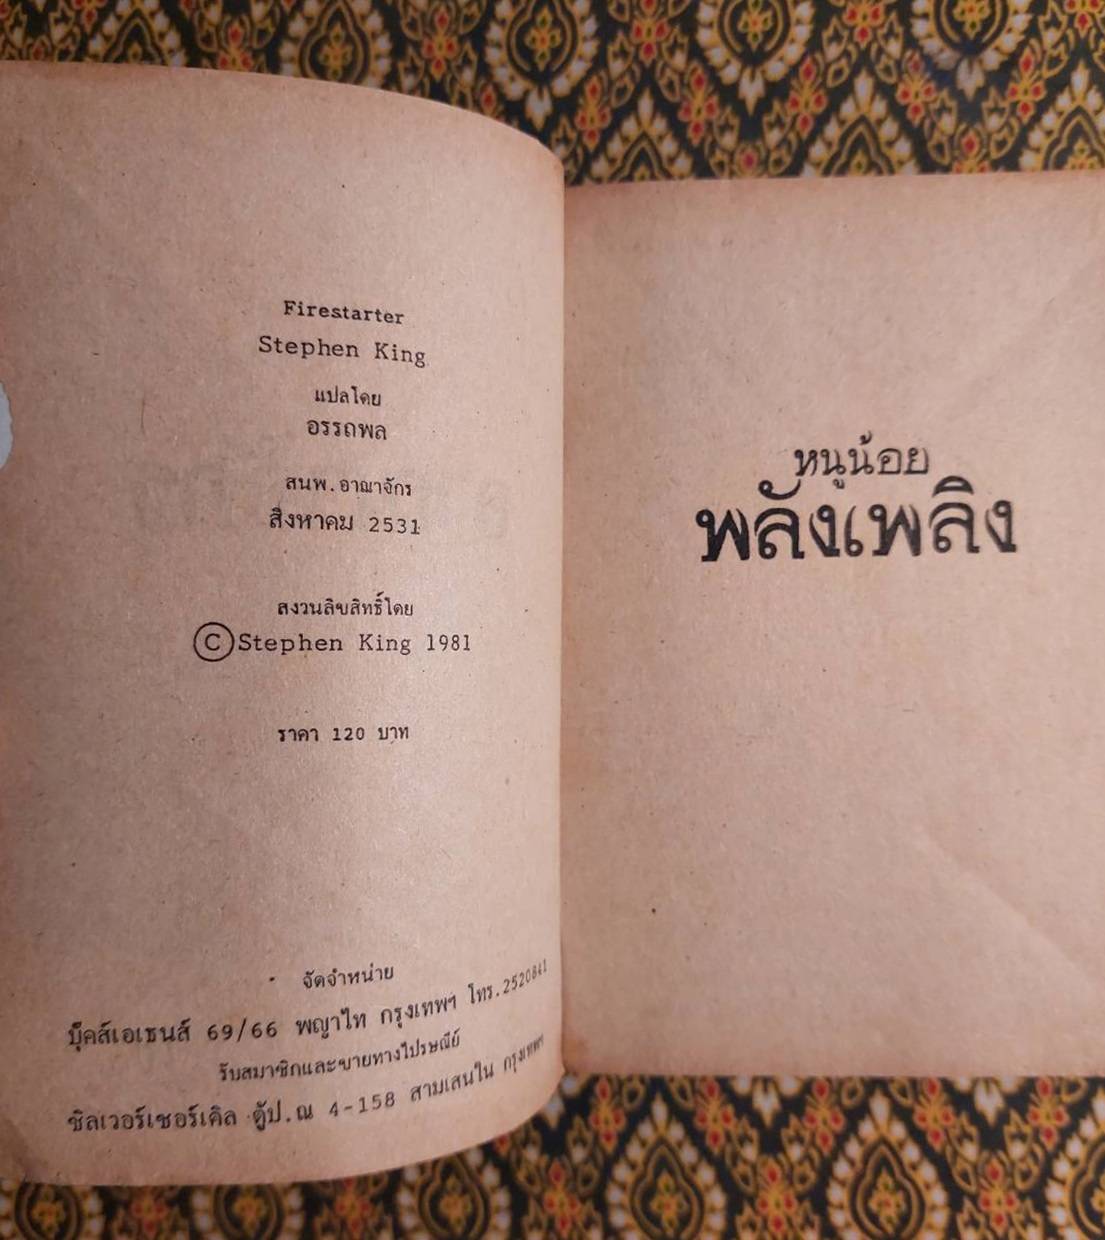 Firestarter
Stephen King
แปลโดย
อรรถพล
สนพ.อาณาจักร
สิงหาคม 2531
สงวนลิขสิทธิ์โดย
©Stephen King 1981
ราคา 120 บาท
จัดจำหน่าย
บุ๊คส์เอเยนส์ 69/66 พญาไท กรุงเทพฯ โทร.2520841
รับสมาชิกและขายทางไปรษณีย์
ซิลเวอร์เซอร์เคิล ตู้ป.ณ 4-158 สามเสนใน กรุงเทพฯ
หนูน้อย
พลังเพลิง